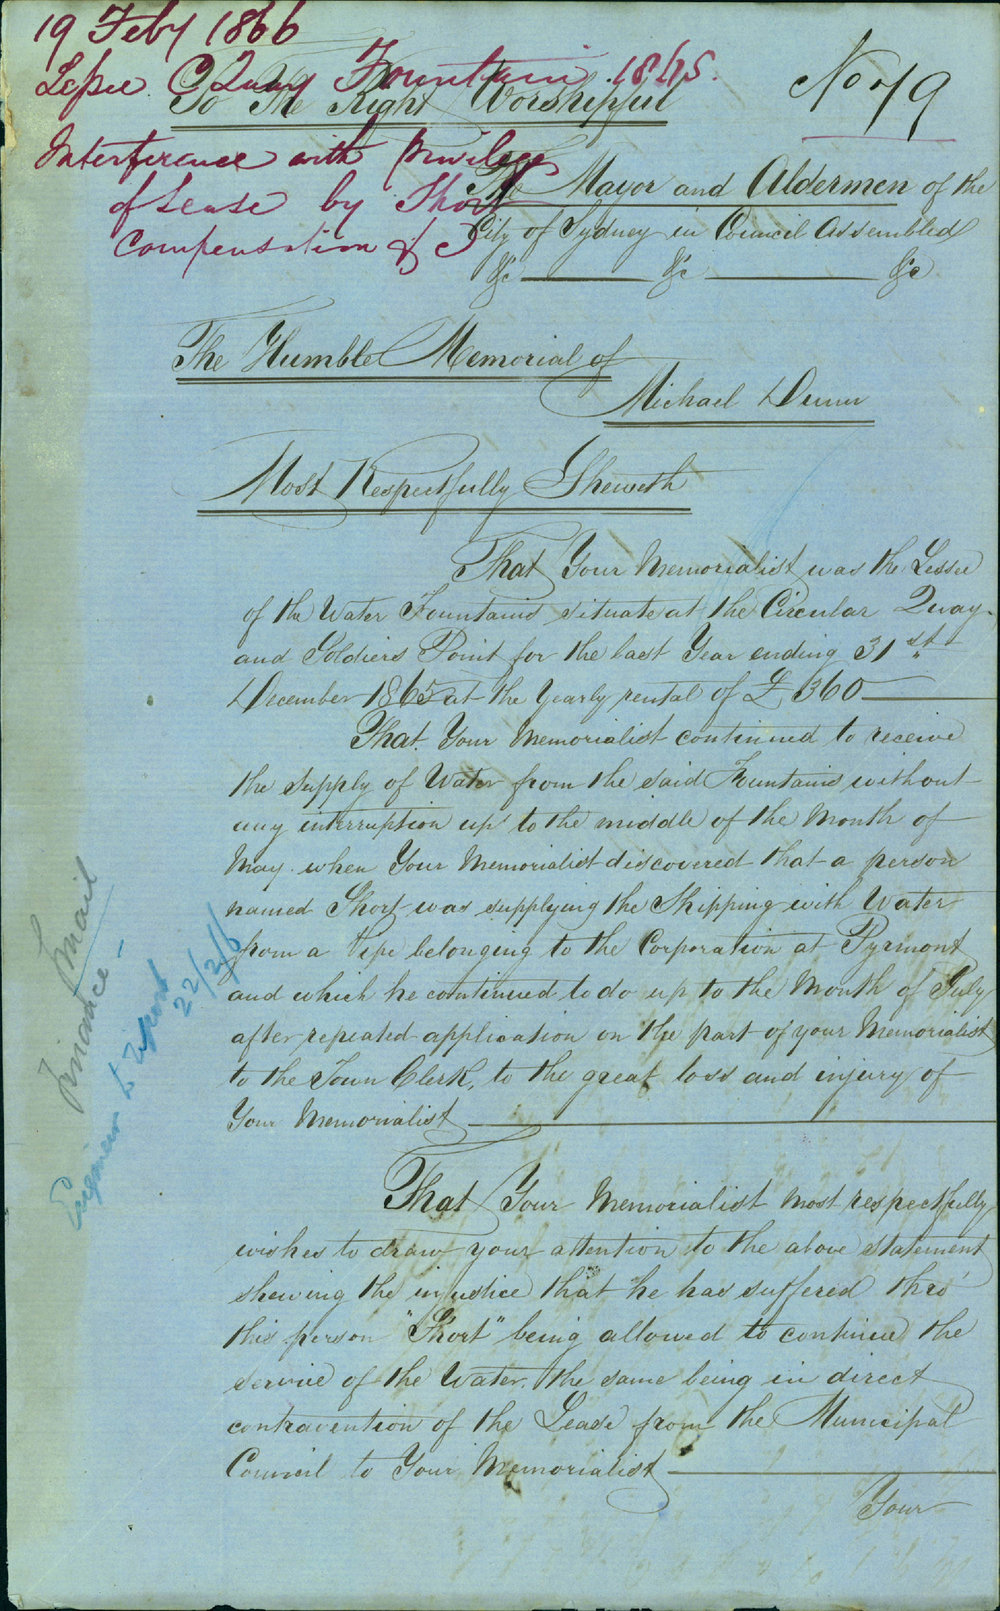 19 Feby 1866
Lessee C Quay Fountain 1865.
No 79
To The Right Worshipful
Interference with privileges
of Lease by Short
Compensation &c
The Mayor and Aldermen of the
City of Sydney in Council Assembled
&c &c &c
The Humble Memorial of
Michael Dunn
Most Respectfully Sheweth
That Your Memorialist was the Lessee
of the Water Fountains situate at the Circular Quay
and Soldiers Point for the last Year ending 31st
December 1865 at the Yearly rental of £360
That Your Memorialist continued to receive
the supply of Water from the said Fountains without
any interruption up to the middle of the Month of
May when Your Memorialist discovered that a person
named Short was supplying the Shipping with Water
from a Pipe belonging to the Corporation at Pyrmont
and which he continued to do up to the Month of July
after repeated application on the part of your Memorialist
to the Town Clerk, to the great loss and injury of
Your Memorialist
That Your Memorialist most respectfully
wishes to draw your attention to the above statement
shewing the injustice that he has suffered thro'
this person "Short" being allowed to continue the
service of the Water, the same being in direct
contravention of the Lease from the Municipal
Council to Your Memorialist
Your
Finance
Engineer to Report
22/2/66